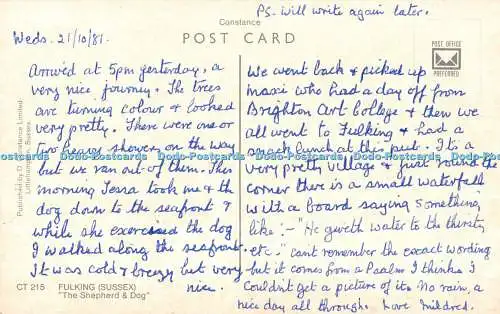 PS. Will write again later.
Constance
POST CARD
POST OFFICE
PREFERRED
Weds. 21/10/81.
Arrived at 5pm yesterday, a
very nice journey. The trees
are turning colour & looked
very pretty. There were one or
two heavy showers on the way
but we ran out of them. This
morning Tessa took me & the
dog down to the seafront &
while she exercised the dog
I walked along the seafront.
It was cold & breezy but very
nice.
We went back & picked up
maxi who had a day off from
Brighton Art College & then we
all went to Fulking & had a
snack lunch at this pub. It's a
very pretty village & just round the
corner there is a small waterfall
with a board saying something
like :- "He giveth water to the thirsty
etc." can't remember the exact wording
but it comes from a Psalm I think. I
Couldn't get a picture of it. No rain, a
nice day all through. Love Mildred.
Published by D. Constance Limited,
Littlehampton, Sussex.
CT 215 FULKING (SUSSEX)
"The Shepherd & Dog"
Dodo-Postcards Dodo-Postcards Dodo-Postcards Dodo-Postcards